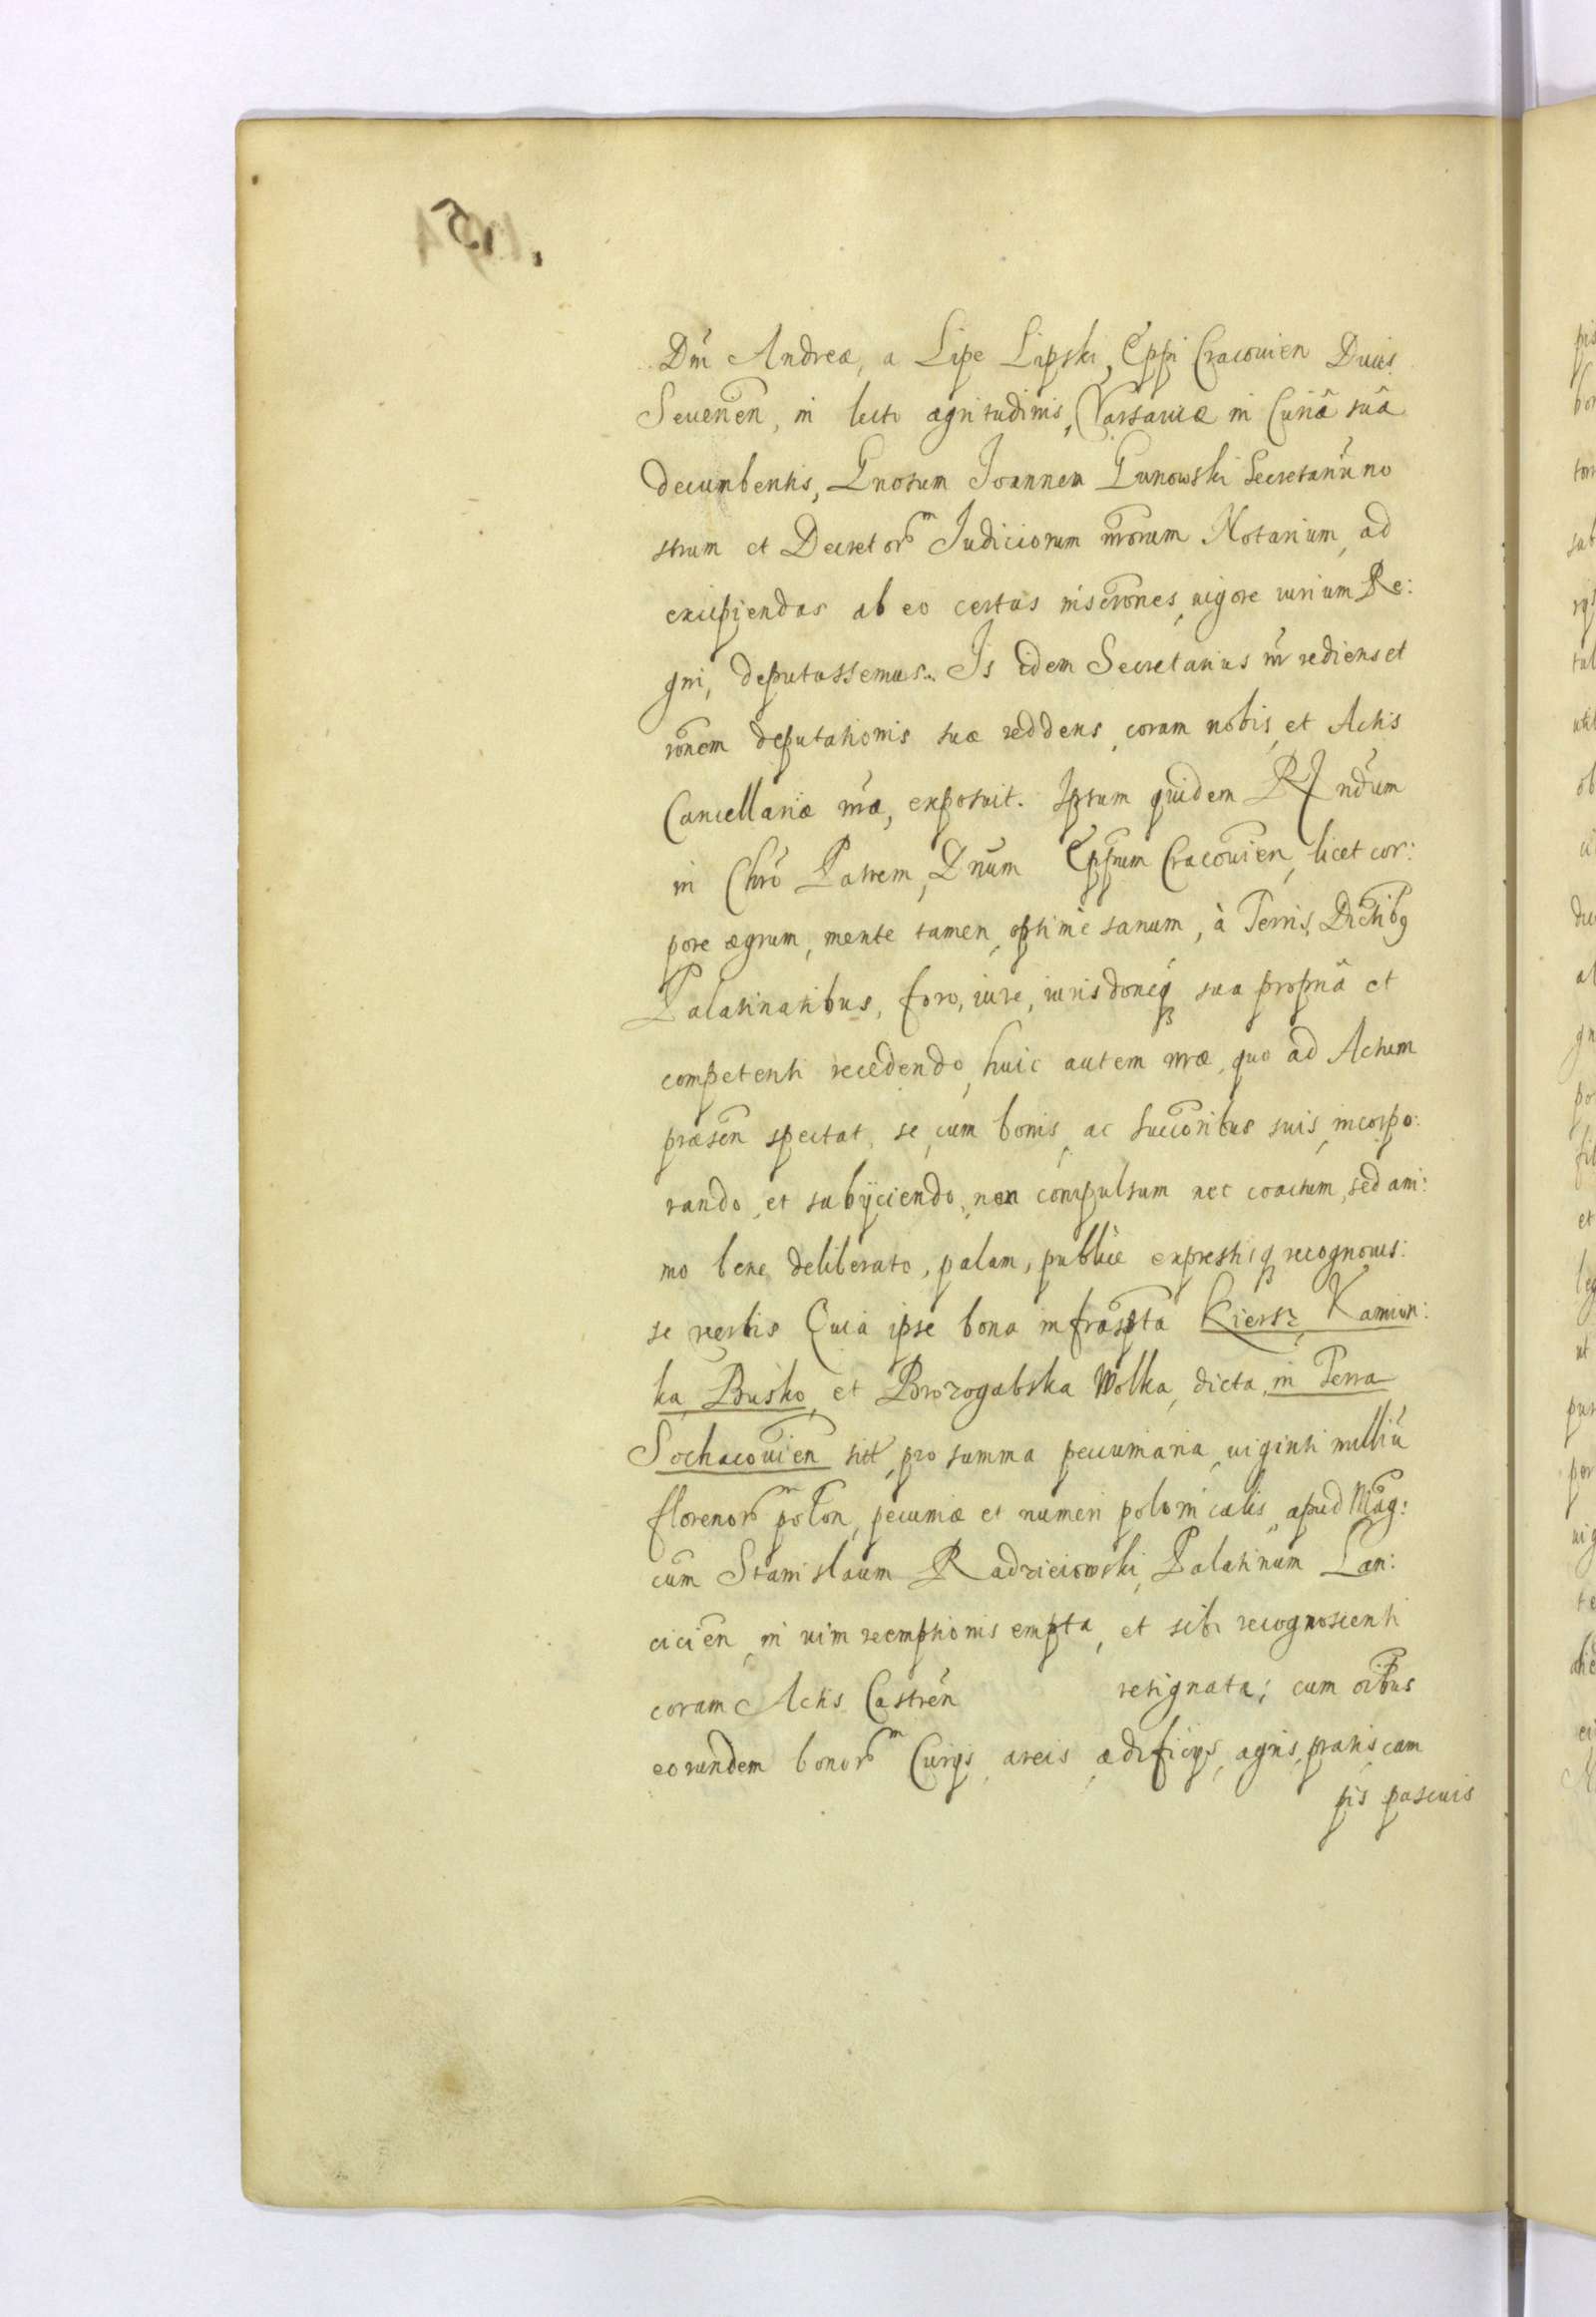 Dni Andreæ, a Lipe Lipski, Eppi Cracouien Ducis
Seuerien, in lecto ægritudinis, Varsauiæ in Curiâ suâ
decumbentis, Gnosum Joannem Gunowski Secretariũ no
strum et Decretorm Judiciorum nrorum Notarium, ad
excipiendas ab eo certas inscrones, uigore iurium Re:
gni, deputassemus. Is idem Secretarius nr rediens et
ronem deputationis suæ reddens, coram nobis, et Actis
Cancellariæ nræ, exposuit. Ipsum quidem RJndum
in Chro Patrem, Dnum Eppum Cracouien, licet cor:
pore ægrum, mente tamen, optimè sanum, à Terris, Distibq
Palatinatibus, foro, iure, iurisdoneq sua propriâ et
competenti recedendo, huic autem nræ, quo ad Actum
præsen spectat, se, cum bonis, ac succoribus suis, incorpo:
rando, et subijciendo, non compulsum nec coactum, sed ani:
mo bene deliberato, palam, publicè expressisq recognouis:
se verbis Quia ipse bona infrascpta Kiersz, Kamion:
ka, Busko, et Bozogabska Wolka, dicta, in Terra
Sochacouien sitt, pro summa pecuniaria, uiginti milliũ
florenorm polon, pecuniæ et numeri polonicalis, apud Mag:
cum Stanislaum Radzieiowski, Palatinum Lan:
cicien, in uim reemptionis empta, et sibi recognoscenti
coram Actis Castren resignata; cum oibus
eorundem bonorm Curijs, areis, ædificijs, agris, pratis, cam
pis pascuis